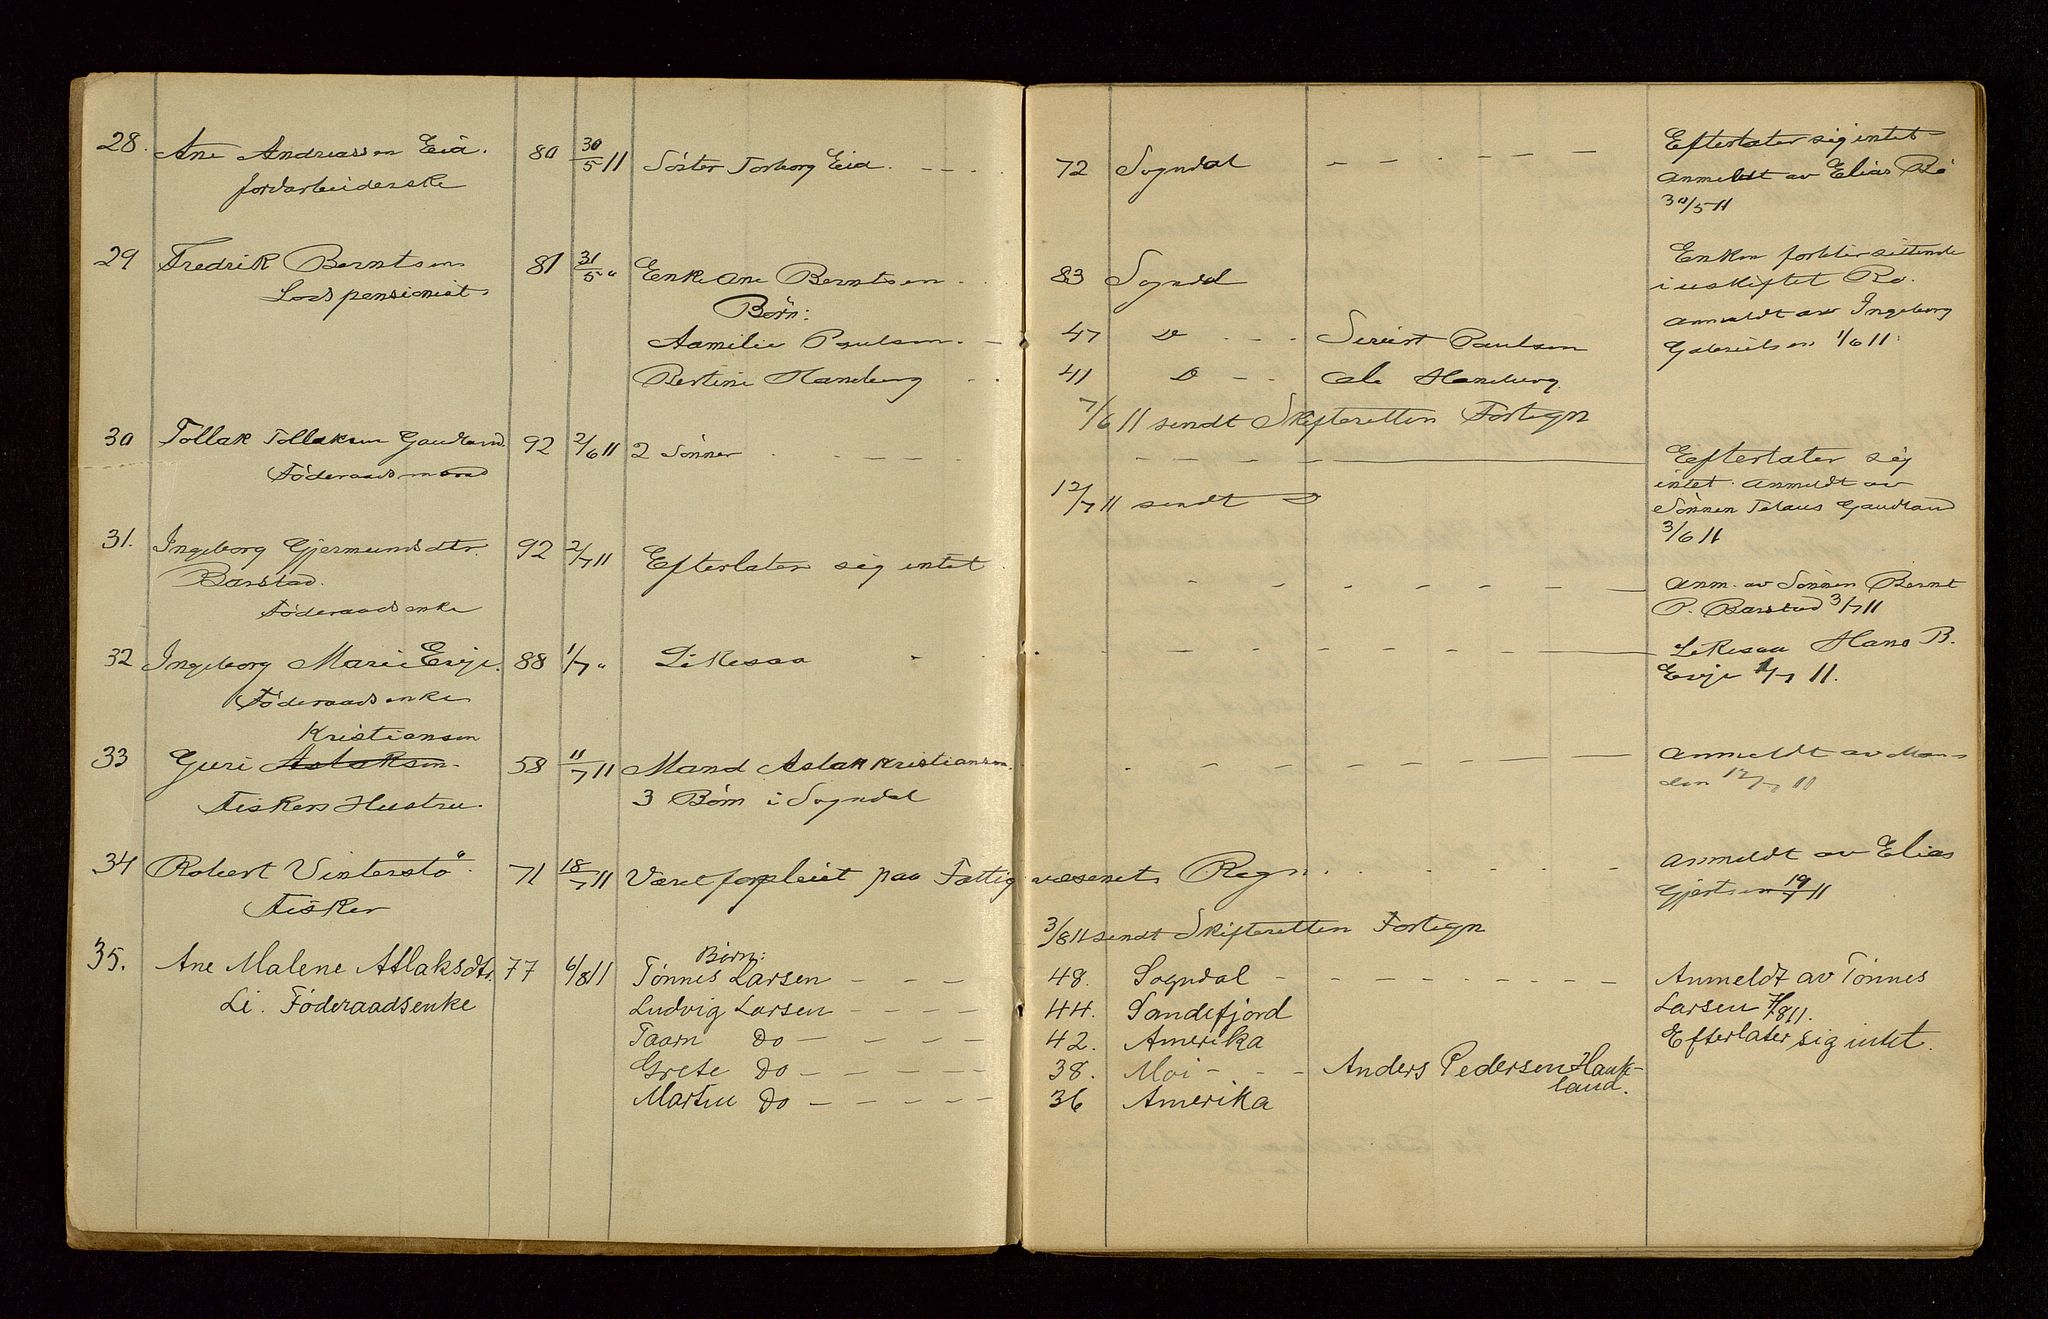 28. Ane Andreassen Eiå. 80 30/5 11 Söster Torborg Eid. 72 Sogndal Efterlater sig intet
Jordarbeiderske anmeldt av Elias
30/5 11
29 Fredrik Berntsen 81 31/5 " Enke Ane Berntsen 83 Sogndal Enken forblir sittende
Lods pensionist i uskiftet Bo.
Børn:
anmeldt av Ingeborg
Aamilie Paulsen. 47 Do Sivert Paulsen
Gabrielsen 1/6 11.
Bertine Haneberg 41 Do Ole Haneberg.
7/6 11 sendt Skifteretten Fortegn
30 Tollak Tollaksen Gaudland 92 2/6 11 2 Sönner Efterlater sig
Föderaadsmand intet. Anmeldt av
12/7 11 sendt Do
Sönnen Gaudland
3/6 11
31. Ingeborg Gjermundsdtr. 92 2/7 11 Efterlater sig intet
Barstad. Anm. av Sönnen Bernt
Föderaadsenke P. Barstad 3/7 11
32 Ingeborg Marie Evje. 88 1/7 " Likesaa Likesaa Hans B.
Föderaadsenke Evje 1/7 11.
Kristiansen
33 Guri Aslaksen. 58 11/7 11 Mand Aslak Kristiansen. Anmeldt av Man-
Fiskers Hustru. 3 Børn i Sogndal den 12/7 11
34 Robert Vinterstö 71 18/7 11 Været forpleiet paa Fattigvæsenets Regn. Anmeldt av Elias
Fisker Gjertsen 19/7 11
3/8 11 sendt Skifteretten Fortegn
Børn:
35. Ane Malene Atlaksdtr. 77 6/8 11 Tønnes Larsen 48. Sogndal Anmeldt av Tönnes
Li. Föderaadsenke Ludvig Larsen 44. Sandefjord Larsen 7/8 11.
Taarn Do 42. Amerika Efterlater sig intet.
Grete Do 38. Moi Anders Pedersen Hauk-
land.
Martin Do 36 Amerika